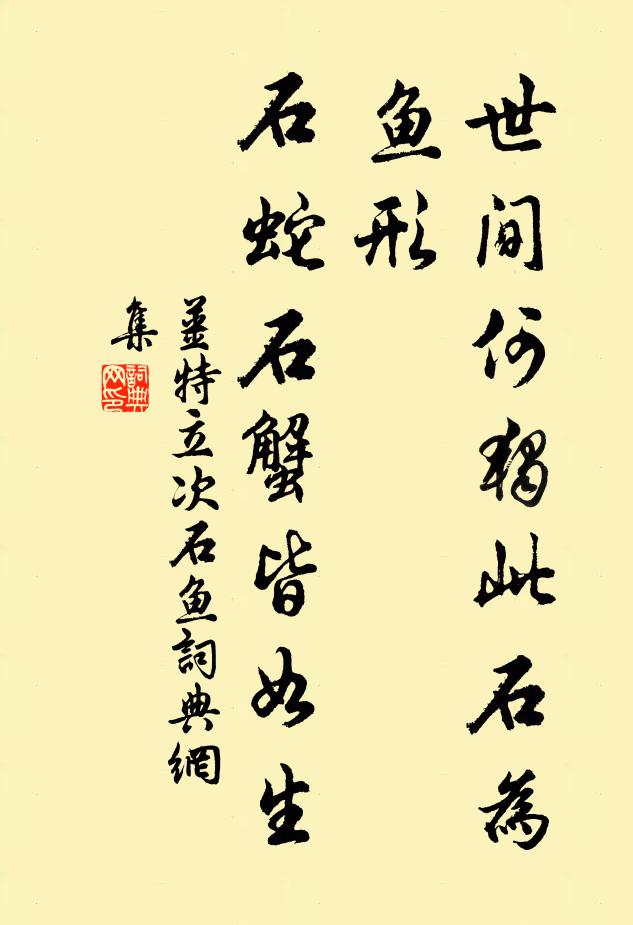 世间何独此石為
鱼形
石蛇石蟹皆如生
薑特立次石鱼詞典網
集
詞典
网印